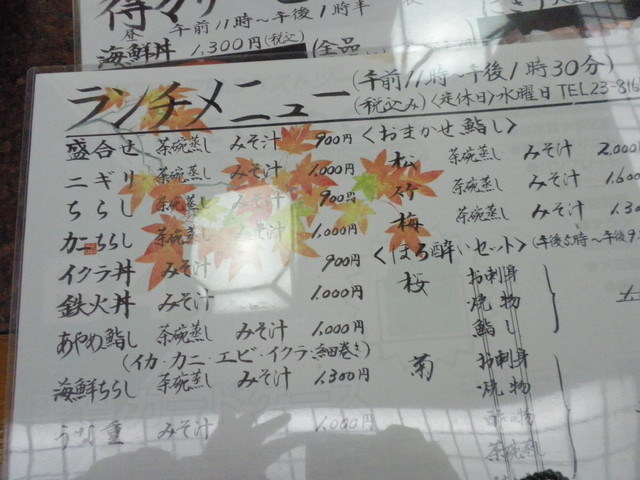 得々サービ
昼 午前11時〜午後1時半
海鮮丼 1,300円(税込) (全品
ランチメニュー (午前11時〜午後1時30分)
(税込み)〈定休日〉水曜日 TEL23-816
盛合せ 茶碗蒸し みそ汁 900円
ニギリ 茶碗蒸し みそ汁 1,000円
ちらし 茶碗蒸し みそ汁 900円
カニちらし 茶碗蒸し みそ汁 1,000円
イクラ丼 みそ汁 900円
鉄火丼 みそ汁 1,000円
あやめ鮨し 茶碗蒸し みそ汁 1,000円
(イカ・カニ・エビ・イクラ・細巻き)
海鮮ちらし 茶碗蒸し みそ汁 1,300円
うな重 みそ汁 1,000円
〈おまかせ鮨し〉
松 茶碗蒸し みそ汁 2,000
竹 茶碗蒸し みそ汁 1,600
梅 茶碗蒸し みそ汁 1,30
〈ほろ酔いセット〉(午後5時〜午後9
桜 お刺身
焼物
鮨し
菊 お刺身
焼物
酢の物
茶碗蒸し